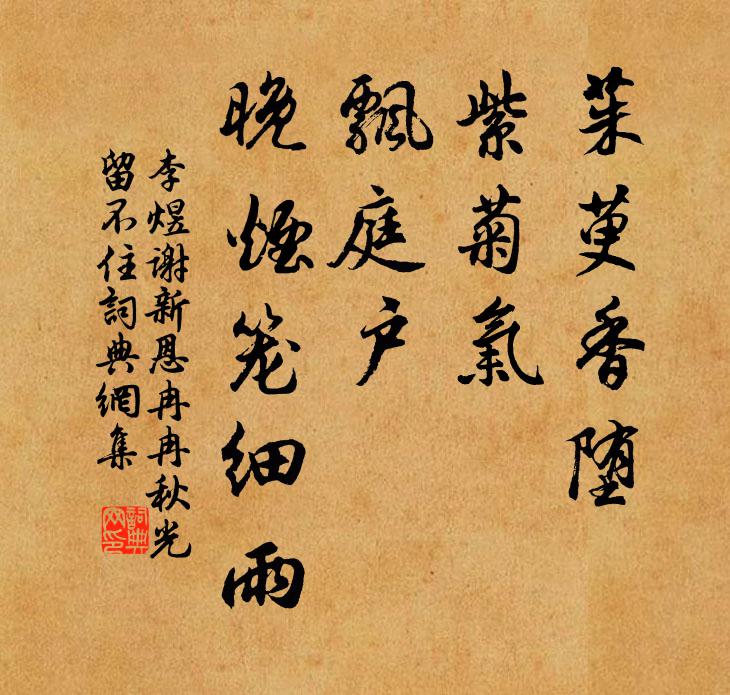 茱萸香堕
紫菊氣
飄庭户
晚煙笼細雨
李煜謝新恩冉冉秋光
留不住詞典網集
詞典网印